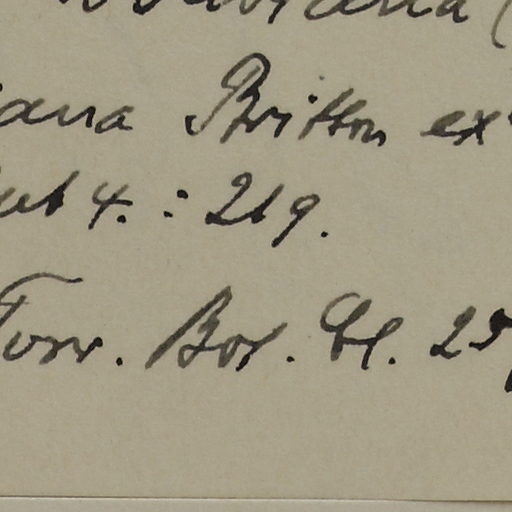 iana Britton ex
4. : 219.
Torr. Bot. Cl. 25